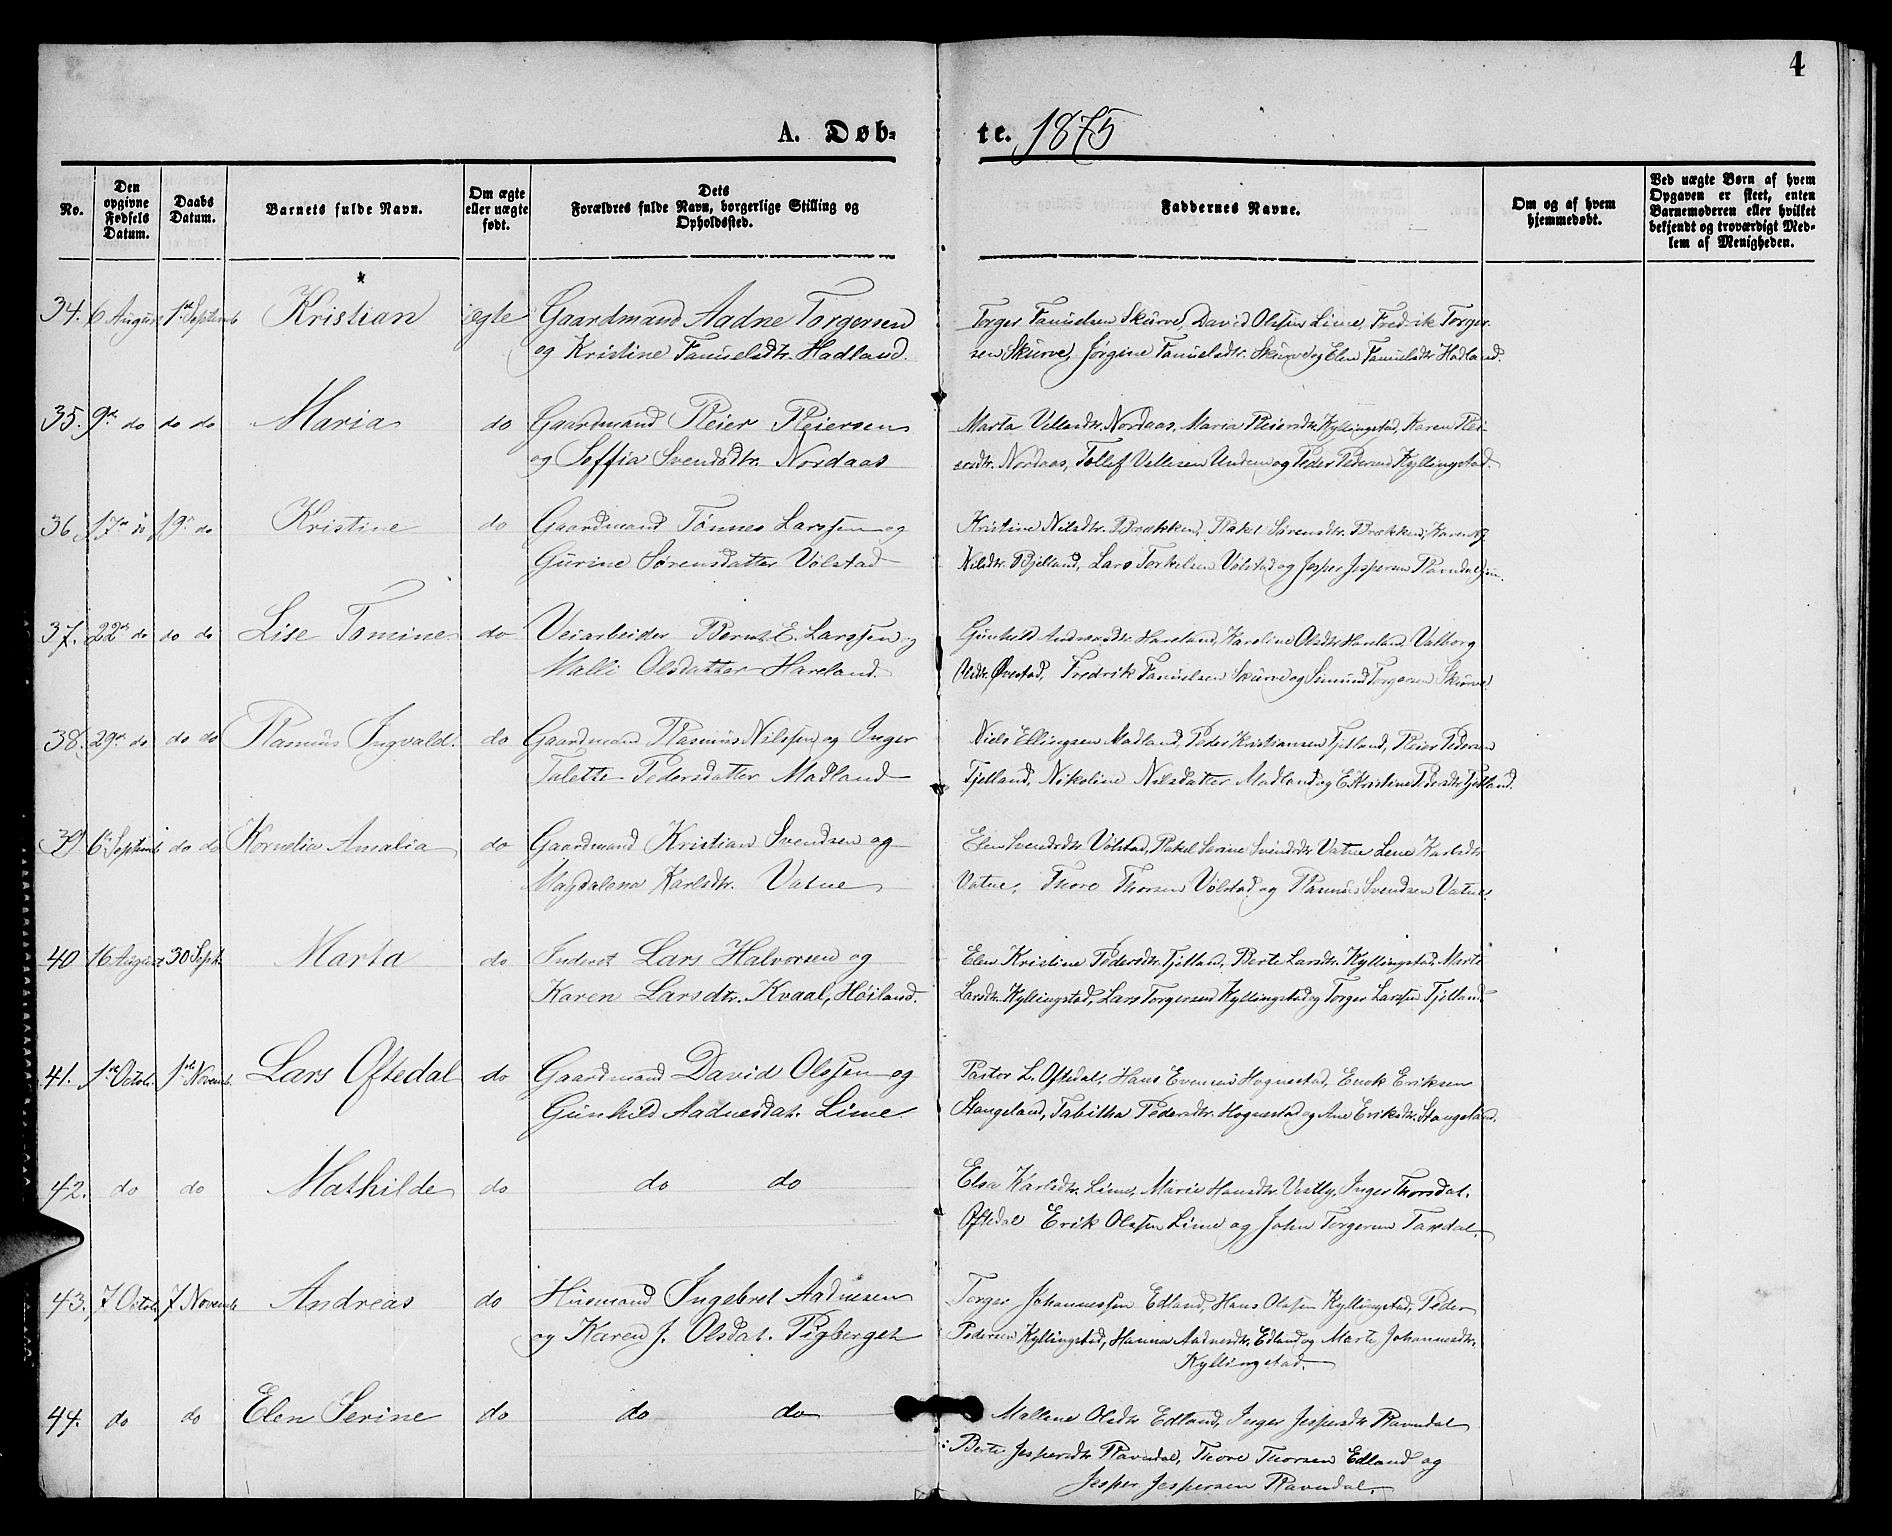 4
A. Døb-te. 1875
No.
Den opgivne Fødsels Datum.
Daabs Datum.
Barnets fulde Navn.
Om ægte eller uægte født.
Dets Forældres fulde Navn, borgerlige Stilling og Opholdssted.
Faddernes Navne.
Om og af hvem hjemmedøbt.
Ved uægte Børn af hvem Opgaven er skeet, enten Barnemoderen eller hvilket bekjendt og troværdigt Medlem af Menigheden.
34. 6 August 1st Septemb Kristian ægte Gaardmand Aadne Torgersen
og Kristine Tanuelsdtr. Hadland
Torger Tanuelsen Skurve, David Olssen Lime, Fredrik Torger-
sen Skurve, Jørgine Tanuelsdtr. Skurve og Elen Tanuelsdtr Hadland.
35. 9de do do do Maria do Gaardmand Reier Reiersen
og Soffia Svendsdtr. Nordaas
Marta Vellesdtr. Nordaas, Maria Reiersdtr. Kyllingstad, Karen Rei-
ersdtr. Nordaas, Tollef Vellesen Undem og Peder Pedersen Kyllingstad.
36 17de do 19de do Kristine do Gaardmand Tønnes Larssen og
Gurine Sørensdatter Vølstad
Kristine Nilsdtr. Brækken, Rakel Sørensdtr. Brækken, Karen
Nilsdtr. Bjelland, Lars Torkelsen Vølstad og Jesper Jespersen Ravndal jun.
37. 22de do do do Lise Tomine do Veiarbeider Bernt E. Larssen og
Malli Olsdatter Hareland
Gunhild Andersdtr. Hareland, Karoline Olsdtr Hareland, Valborg
Olsdtr. Øvestad, Fredrik Tanuelsen Skurve og Simund Torgersen Skurve.
38. 29de do do do Rasmus Ingvald. do Gaardmand Rasmus Nilssen og Inger
Talette Pedersdatter Madland
Niels Ellingsen Madland, Peder Kristiansen Fjetland, Reier Pedersen
Fjetland, Nikoline Nilsdatter Madland og E. Kristine Pedersdtr Fjetland.
39 6te Septemb do do Kornelia Amalia do Gaardmand Kristian Svendsen og
Magdalena Karlsdtr. Vatne
Elen Svendsdtr Vølstad, Rakel Serine Svendsdtr Vatne Lene Karlsdtr
Vatne, Thore Thorsen Vølstad og Rasmus Svendsen Vatne.
40 16 August 30 Sept. Marta do Inderst Lars Halvorsen og
Karen Larsdtr. Kvaal, Høiland.
Elen Kristine Pedersdtr. Fjetland, Berte Larsdtr. Kyllingstad, Marte
Larsdtr. Kyllingstad, Lars Torgersen Kyllingstad og Torger Larssen Fjetland
41. 1ste Octob. 1ste Novemb. Lars Oftedal do Gaardmand David Olssen og
Gunhild Aadnesdat. Lime.
Pastor L. Oftedal, Hans Evensen Hognestad, Enok Eriksen
Stangeland, Tabitha Pedersdtr. Hognestad og Ane Eriksdtr. Stangeland.
42. do do Mathilde do do do
Elen Karlsdtr. Lime, Marie Hansdtr. Vestly, Inger Thorsdat.
Oftedal Erik Olssen Lime og John Torgersen Taxdal.
43. 7 Octob. 7 Novemb Andreas do Husmand Ingebret Aadnesen
og Karen J. Olsdat. Pigberget
Torger Johannessen Edland, Hans Olssen Kyllingstad, Peder
Pedersen Kyllingstad, Hanna Aadnesdtr. Edland og Marte Johannesdtr.
Kyllingstad.
44. do do Elen Serine do do do
Mallene Olsdtr Edland, Inger Jespersdtr Ravndal
Berte Jespersdtr Ravndal, Thore Thorsen Edland og
Jesper Jespersen Ravndal.